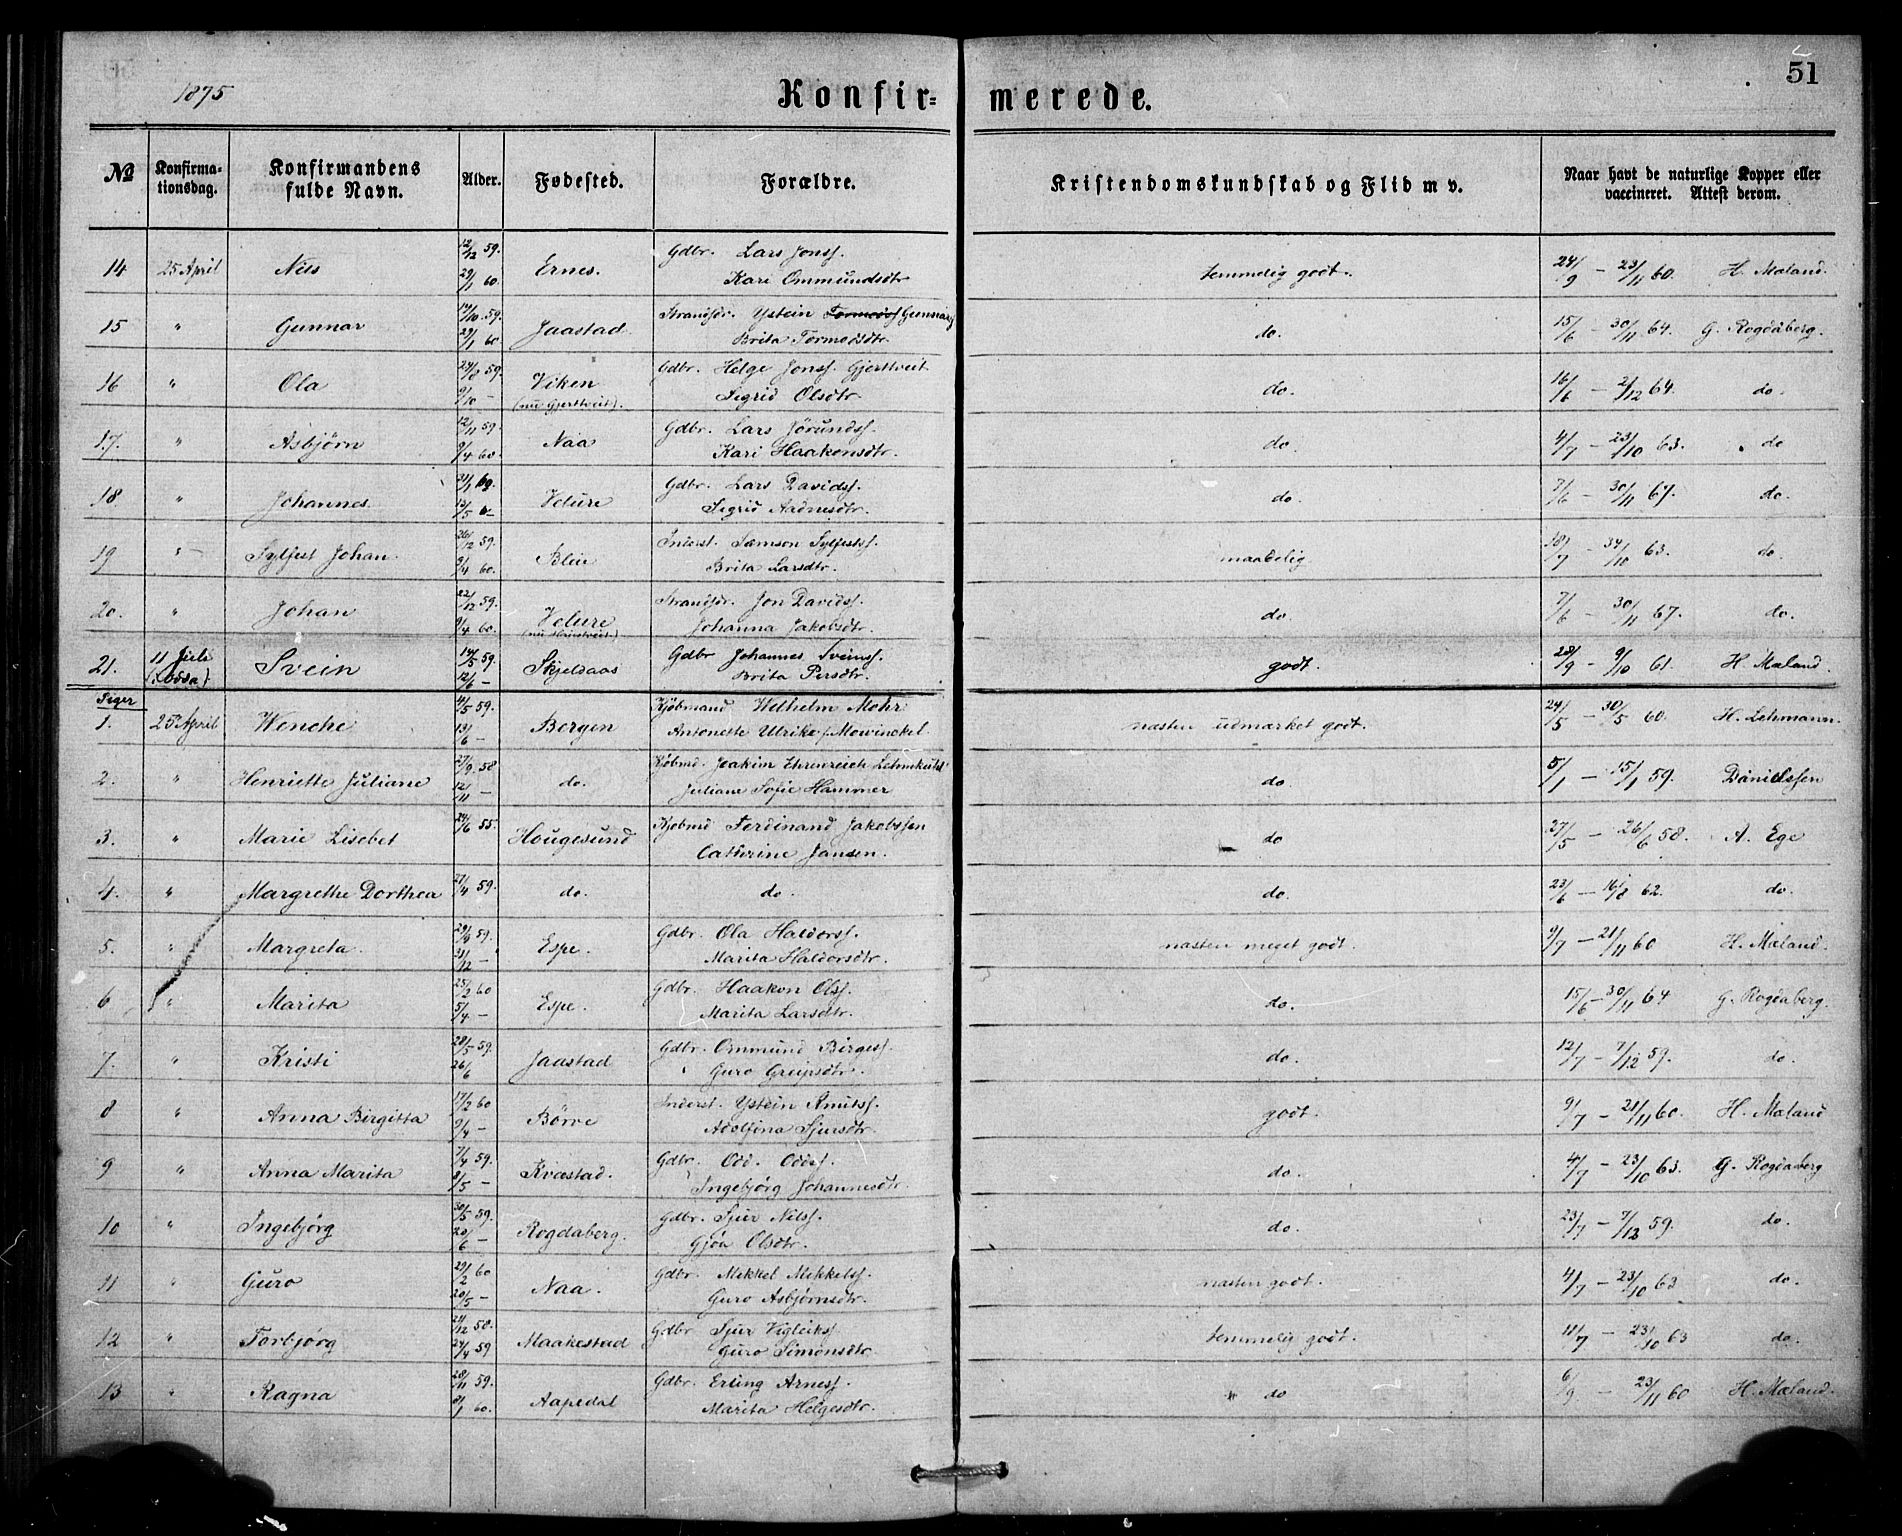 1875 Konfir= merede. 51
№ Konfirma-tionsdag. Konfirmandens fulde Navn. Alder. Fødested. Forældre. Kristendomskundskab og Flid m v. Naar havt de naturlige Kopper eller vaccineret. Attest derom.
14 25 April Nils 12/12 59. Ernes. Gdbr. Lars Jonss. temmelig godt. 24/9 — 23/11 60. H. Mæland.
29/1 60. Kari Ommundsdtr
15 " Gunnar 17/10 59. Jaastad Strandsdr. Ystein Tormods Gunnars do. 15/6 — 30/11 64. G. Rogdaberg.
29/1 60 Brita Tormodsdtr.
16 " Ola 24/8 59. Viken Gdbr. Helge Jonss. Gjerttveit do. 16/6 — 2/12 64. do.
9/10 — (nu Gjerttveit). Sigrid Olsdtr
17. " Asbjörn 12/11 59. Naa Gdbr. Lars Jörunds. do. 4/7 — 23/10 63. do
9/4 60. Kari Haakonsdtr.
18. " Johannes. 21/1 60. Velure Gdbr. Lars Davidss. do. 7/6 — 30/11 67. do.
13/5 Sigrid Aadnesdtr.
19 " Sylfest Johan. 26/12 59. Bleie Inderst. Samson Sylfests. maadelig 18/7 — /10 63. do.
9/4 60. Brita Larsdtr.
20. " Johan 22/12 59. Velure Strandsdr. Jon Davidss. do. 7/6 — 30/11 67. do.
9/4 60. Johanna Jakobsdtr.
21. 11 Juli (Odda) Svein 14/5 59. Skjeldaas Gdbr Johannes Sveins. godt. 28/9 — 9/10 61. H Mæland.
12/6 — Brita Persdtr.
Piger
1. 25 April Wenche 4/5 59. Bergen Kjöbmand Wilhelm Mohr næsten udmærket godt. 24/5 — 30/5 60. H. Lehmann.
13/6 — Antonette Ulrike f. Mowinckel
2. " Henriette Juliane 27/9 58 do. Kjöbmd. Joakim Ehrenreich Lehmkuhl do 5/1 — 15/1 59. Danielssen
12/11 — Juliane Sofie Hammer
3. " Marie Lisebet 24/6 55. Hougesund Kjobmd Ferdinand Jakobssen do 27/5 — 26/6 58. A. Ege
Cathrine Jansen.
4. " Margrethe Dorthea 27/4 59. do. do. do. 23/6 — 16/8 62. do.
5. " Margreta. 29/9 59. Espe. Gdbr. Ola Haldorss. næsten meget godt. 9/7 — 21/11 60 H. Mæland.
/12 — Marita Haldorsdtr.
6 " Marita 25/2 60 Espe. Gdbr. Haakon Olss. do. 15/6 — 30/11 64 G. Rogdaberg.
5/4 — Marita Larsdtr.
7. " Kristi 28/5 59. Jaastad Gdbr. Ommund Birgess. do. 12/7 — 7/12 59. do.
26/6 Guro Greipsdtr.
8 " Anna Birgitta 17/2 60 Börve Inderst. Ystein Amits. godt. 9/7 — 21/11 60. H. Mæland
9/4 — Adolfina Sjursdtr.
9 " Anna Marita 7/4 59. Kvæstad. Gdbr. Odd. Odds. do. 4/7 — 23/10 63. G. Rogdaberg
8/5 — Ingebjörg Johannesdtr.
10 " Ingebjörg 30/5 59. Rogdaberg. Gdbr. Sjur Nilss. do. 23/7 — 7/12 59. do.
20/6 — Gjöa Olsdtr.
11 " Guro 29/2 60 Naa. Gdbr. Mikkel Mikkelss. næsten godt. 4/7 — 23/10 63 do.
20/5 — Guro Asbjörnsdtr.
12 " Torbjörg 21/12 58. Maakestad Gdbr Sjur Vigleiks. temmelig godt. 11/7 — 23/10 63 do.
24/4 59 Guro Simonsdtr.
13 " Ragna 28/11 59. Aapedal Gdbr. Erling Arness. do 6/9 — 23/11 60 H. Mæland.
/1 60. Marita Helgesdtr.